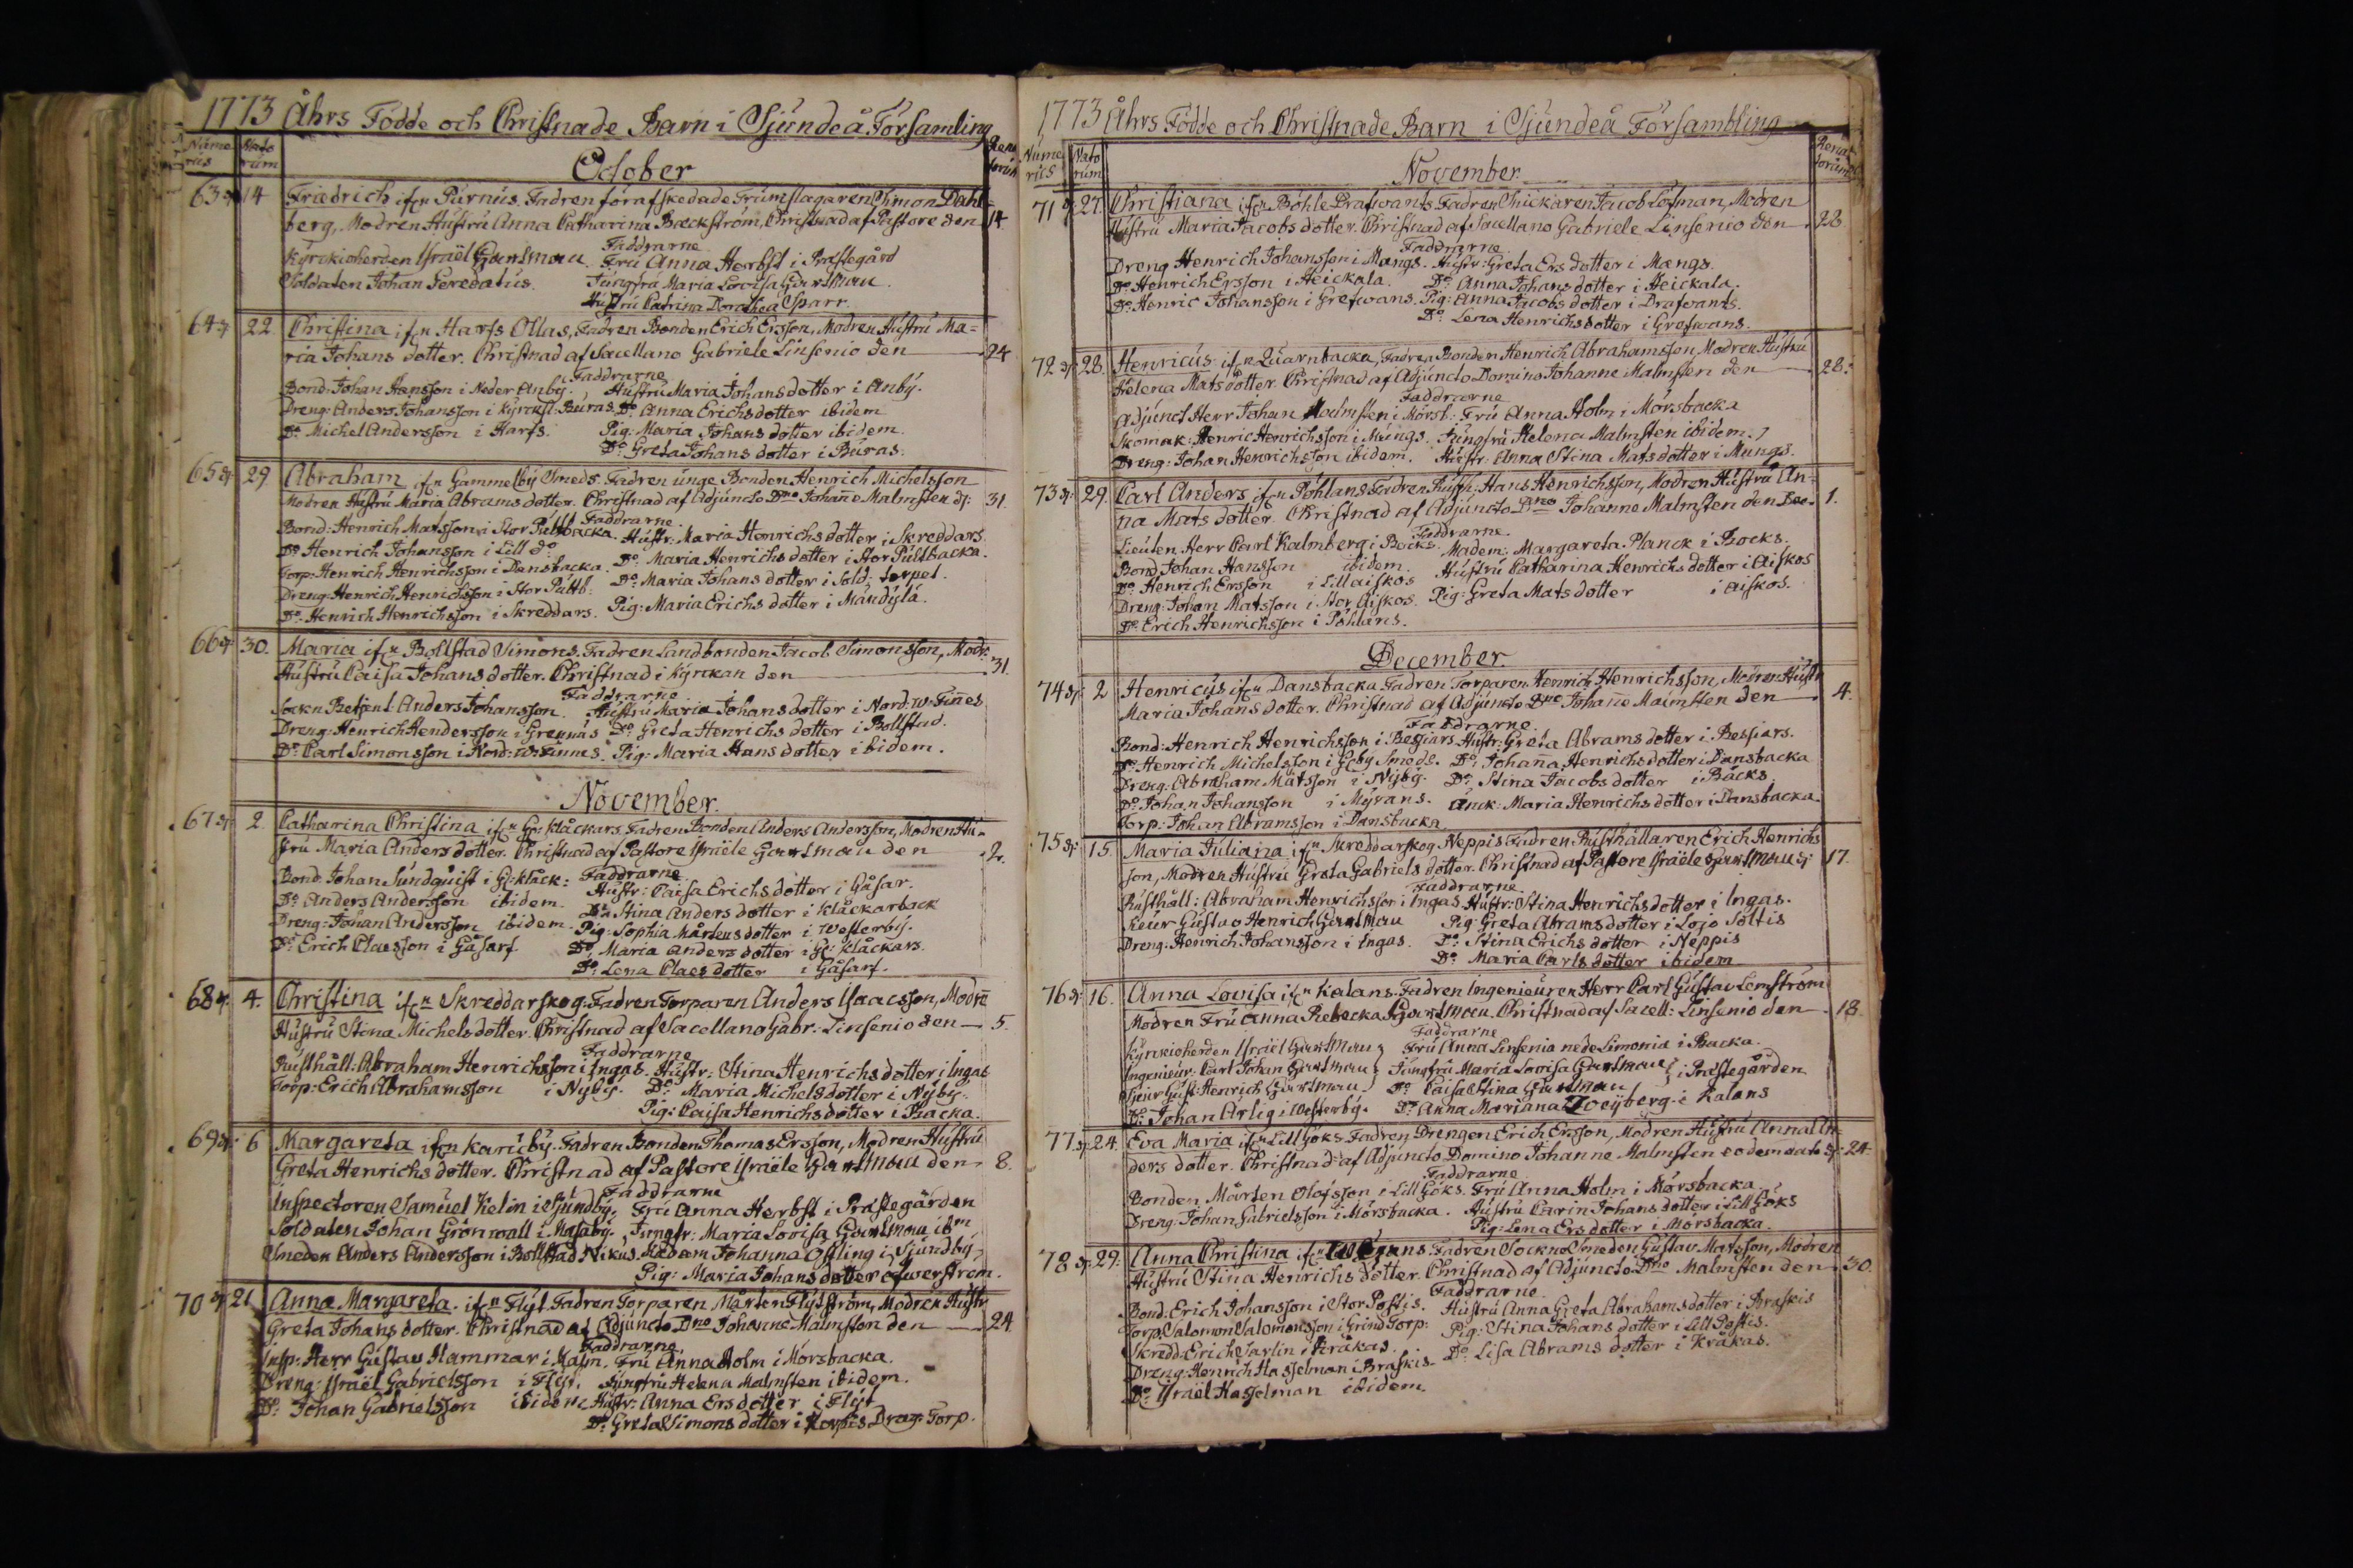 1773 Åhrs Födde och Christnade Barn i Sjundeå Församling
Nume rus Nato rum Rena torum
October
63 14 Friedrich ifrn Purnus. Fadren förafskedade Trumslagaren Simon Dahl=
berg, Modren Hustru Anna Catharina Beckström, Christnad af Pastore den 14.
Faddrarne
Kyrckioherden Israël Gartman. Fru Anna Herbst i Prästegård
Soldaten Johan Feredatus. Jungfru Maria Lovisa Gartman.
Hustru Catrina Dorothea Sparr.
64 22. Christina ifrn Harfs Ollas, Fadren Bonden Erich Ersson, Modren Hustru Ma=
ria Johans dotter. Christnad af Sacellano Gabriele Linsenio den 24
Faddrarne
Bond: Johan Hansson i Neder Anby. Hustru Maria Johans dotter i Anby.
Dreng: Anders Johansson i Kyrckst: Buras. Do Anna Erichs dotter ibidem
Do Michel Andersson i Harfs. Pig: Maria Johans dotter ibidem.
Do Greta Johans dotter i Buras.
65 29 Abraham ifrn Gammelby Smeds. Fadren unge Bonden Henrich Michelsson
Modren Hustru Maria Abrams dotter. Christnad af Adjuncto Dno Johanne Malmsten d: 31.
Faddrarne
Bond: Henrich Matsson i Stor Puttbacka. Hustr: Maria Henrichs dotter i Skreddars.
Do Henrich Johansson i Lill do Do Maria Henrichs dotter i Stor Puttbacka.
Torp: Henrich Henrichsson i Dansbacka. Do Maria Johans dotter i Sold: torpet.
Dreng: Henrich Henrichsson i Stor Puttb: Pig: Maria Erichs dotter i Mandyla.
Do Henrich Henrichsson i Skreddars.
66 30. Maria ifrn Bollstad Simons. Fadren Landbonden Jacob Simonsson, Modr:
Hustru Caisa Johans dotter. Christnad i Kyrckan den 31.
Faddrarne
Sockn Betjent Anders Johansson. Hustru Maria Johans dotter i Nord: w: Finnes
Dreng: Henrich Hendersson i Grennäs Do Greta Henrichs dotter i Bollstad.
Do Carl Simonsson i Nord: w: Finnes. Pig: Maria Hans dotter ibidem.
November.
67 2. Catharina Christina ifrn G: Klåckars. Fadren Bonden Anders Andersson, Modren Hu=
stru Maria Anders dotter. Christnad af Pastore Israële Gartman den 2.
Faddrarne
Bond: Johan Sundquist i G: Klåck: Hustr: Caisa Erichs dotter i Gåsar.
Do Anders Andersson ibidem. Do Stina Anders dotter i Klåckarback
Dreng: Johan Andersson ibidem. Pig: Sophia Mårtens dotter i Westerby.
Do Erich Claesson i Gåsarf. Do Maria Anders dotter i G: Klåckars.
Do Lena Claes dotter i Gåsarf.
68 4. Christina ifrn Skreddarskog. Fadren Torparen Anders Isaacsson, Modren
Hustru Stina Michels dotter. Christnad af Sacellano Gabr: Linsenio den 5.
Faddrarne
Rusthåll: Abraham Henrichsson i Ingas. Hustr: Stina Henrichs dotter i Ingas
Torp: Erich Abrahamsson i Nyby. Do Maria Michels dotter i Nyby.
Pig: Caisa Henrichs dotter i Backa.
69 6 Margareta ifrn Kariby. Fadren Bonden Thomas Ersson, Modren Hustru
Greta Henrichs dotter. Christnad af Pastore Israële Gartman den 8.
Faddrarne
Inspectoren Samuel Kelin i Sjundby. Fru Anna Herbst i Prästegården
Soldaten Johan Grönwall i Masaby. Jungfr: Maria Lovisa Gartman ibm
Smeden Anders Andersson i Bollstad Nikus. Madem Johanna Ofling i Sjundby
Pig: Maria Johans dotter öfwerström.
70 21 Anna Margareta ifrn Flyt. Fadren Torparen Mårten Flytström, Modren Hustr
Greta Johans dotter. Christnad af Adjuncto Dno Johanne Malmsten den 24
Faddrarne
Insp: Herr Gustav Hammar i Malm. Fru Anna Holm i Mörsbacka.
Dreng: Israël Gabrielsson i Flyt. Jungfru Helena Malmsten ibidem.
Do Johan Gabrielsson ibidem. Hustr: Anna Ers dotter i Flyt
Do Greta Simons dotter i Korpis Drag: Torp.
1773 Åhrs Födde och Christnade Barn i Sjundeå Försambling
Nume rus Nato rum Rena torum
November.
71 27. Christiana ifrn Böhle Drafwants. Fadren Snickaren Jacob Löfman, Modren
Hustru Maria Jacobs dotter. Christnad af Sacellano Gabriele Linsenio den 28
Faddrarne
Dreng Henrich Johansson i Mængs. Hustr: Greta Ers dotter i Mængs.
Do Henrich Ersson i Heickala. Do Anna Johans dotter i Heickala.
Do Henric Johansson i Grefwans. Pig: Anna Jacobs dotter i Drafwants.
Do Lena Henrichs dotter i Grefwans.
72 28. Henricus ifrn Quarnbacka, Fadren Bonden Henrich Abrahamsson, Modren Hustru
Helena Mats dotter. Christnad af Adjuncto Domino Johanne Malmsten den 28.
Faddrarne
Adjunct Herr Johan Malmsten i Mörsb: Fru Anna Holm i Mörsbacka
Skomak: Henric Henrichsson i Mungs. Jungfru Helena Malmsten ibidem.
Dreng: Johan Henrichsson ibidem. Hustr: Anna Stina Mats dotter i Mungs.
73 29 Carl Anders ifrn Pöhlans Fadren Rusth: Hans Henrichsson, Modren Hustru An=
na Mats dotter. Christnad af Adjuncto Dno Johanne Malmsten den Dec. 1.
Faddrarne
Lieuten Herr Carl Kalmberg i Bocks. Madem: Margareta Planck i Bocks.
Bond Johan Hansson ibidem. Hustru Catharina Henrichs dotter i Aiskos
Do Henrich Ersson i Lill aiskos Pig: Greta Mats dotter i aiskos.
Dreng: Johan Matsson i Stor Aiskos.
Do Erich Henrichsson i Pöhlans.
December.
74 2 Henricus ifrn Dansbacka Fadren Torparen Henrich Henrichsson, Modren Hustr
Maria Johans dotter. Christnad af Adjuncto Dno Johanne Malmsten den 4.
Faddrarne
Bond: Henrich Henrichsson i Bessiars. Hustr: Greta Abrams dotter i Bessiars.
Do Henrich Michelsson i G:by Smeds. Do Johanna Henrichs dotter i Dansbacka
Dreng: Abraham Matsson i Nybg. Do Stina Jacobs dotter i Bäcks
Do Johan Johansson i Myrans. Enck: Maria Henrichs dotter i Dansbacka.
Torp: Johan Abramsson i Dansbacka
75 15. Maria Juliana ifrn Skreddarskog Neppis Fadren Rusthållaren Erich Henrichs
son, Modren Hustru Greta Gabriels dotter. Christnad af Pastore Israële Gartman d: 17.
Faddrarne
Rusthåll: Abraham Henrichsson i Ingas. Hustr: Stina Henrichs dotter i Ingas.
Sieur Gustav Henrich Gartman Pig: Greta Abrams dotter i Lojo Soltis
Dreng: Henrich Johansson i Ingas. Do Stina Erichs dotter i Neppis
Do Maria Carls dotter ibidem
76 16. Anna Lovisa ifrn Kalans. Fadren Ingenieuren Herr Carl Gustav Lemström
Modren Fru Anna Rebecka Gartman. Christnad af Sacell: Linsenio den 18.
Faddrarne
Kyrckioherden Israël Gartman Fru Anna Linsenia nede Limonia i Backa.
Ingenieur: Carl Johan Gartman Jungfru Maria Lovisa Gartman i Prestegården
Sieur Gust: Henrich Gartman Do Caisa Stina Gartman
Do Johan Arlig i Westerby. Do Anna Mariana Zweyberg i Kalans
77 24. Eva Maria ifrn Lill Göks. Fadren Drengen Erich Ersson, Modren Hustru Anna An=
ders dotter. Christnad af Adjuncto Domino Johanne Malmsten eodem dato d: 24.
Faddrarne
Bonden Mårten Olofsson i Lill Göks. Fru Anna Holm i Mörsbacka
Dreng: Johan Gabrielsson i Mörsbacka. Hustru Carin Johans dotter i Lill Göks
Pig: Lena Ers dotter i Mörsbacka.
78 29. Anna Christina ifrn Fadren Sockne Smeden Gustav Matsson, Modren
Hustru Stina Henrichs dotter. Christnad af Adjuncto Dno Malmsten den 30.
Faddrarne.
Bond: Erich Johansson i Stor Postis. Hustru Anna Greta Abrahams dotter i Braskis
Torp: Salomon Salomonsson i Grind Torp: Pig: Stina Johans dotter i Lill Postis.
Skredd: Erich Carlin i Kråkas. Do Lisa Abrams dotter i Kråkas.
Dreng: Henrich Hasselman i Braskis.
Do Israël Hasselman ibidem.